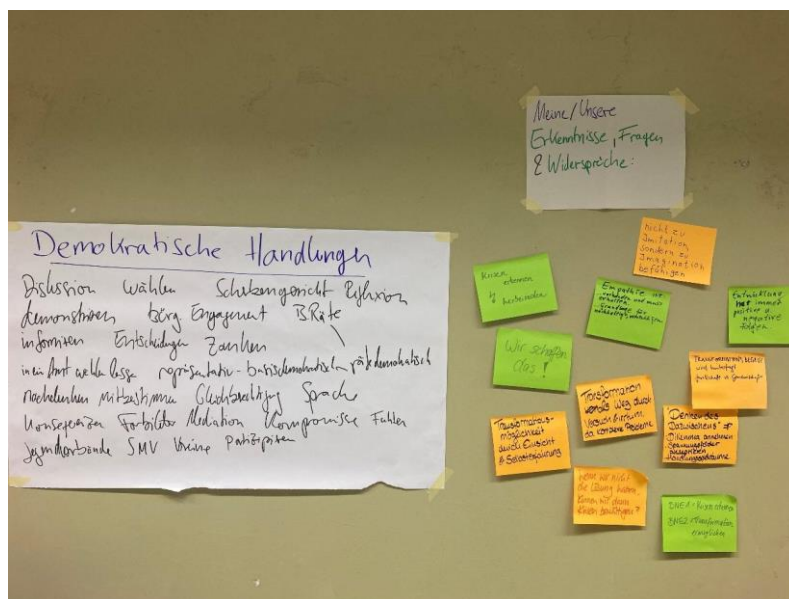 Demokratische Handlungen
Diskussion wählen Scherbengericht Reflexion
demonstrieren bürg. Engagement BRäte
informieren Entscheidungen Zanken
in ein Amt wählen lassen repräsentativ - basisdemokratisch rätedemokratisch
nachdenken mitbestimmen Gleichberechtigung Sprache
Konsequenzen Fortbilden Mediation Kompromisse Fehler
Jugendverbände SMV Vereine
Meine/Unsere
Erkenntnisse, Fragen
& Widersprüche:
nicht zu
Imitation,
sondern zu
Imagination
befähigen
Krisen
erkennen
herbeireden
Empathie ist
und muss
Entwicklung
hat immer
positive u.
negative
Folgen
Wir schaffen
das!
Transformation
Weg durch
Versuch & Irrtum,
da komplexe Probleme
Transformations-
möglichkeit
durch Einsicht
& Selbsterfahrung
"Denken des
Dazwischens"
Dilemma annehmen
Spannungsfelder
Handlungsspielräume
Wenn wir nicht
die Lösung haben,
können wir dann
Krisen bewältigen?
ermöglichen